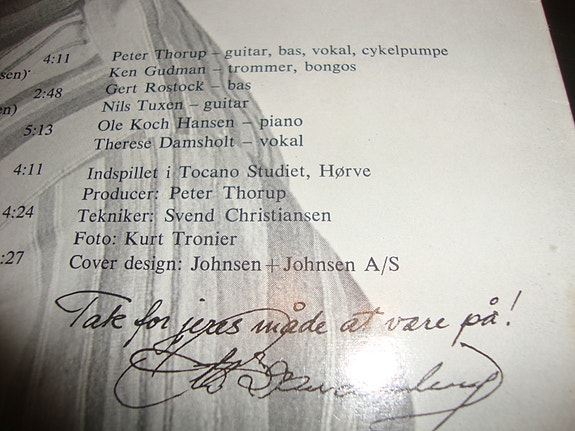 4:11
Peter Thorup – guitar, bas, vokal, cykelpumpe
sen)
Ken Gudman – trommer, bongos
2:48
Gert Rostock – bas
en)
Nils Tuxen – guitar
5:13
Ole Koch Hansen – piano
Therese Damsholt – vokal
4:11
Indspillet i Tocano Studiet, Hørve
Producer: Peter Thorup
4:24
Tekniker: Svend Christiansen
Foto: Kurt Tronier
:27
Cover design: Johnsen + Johnsen A/S
Tak for jeres måde at være på!